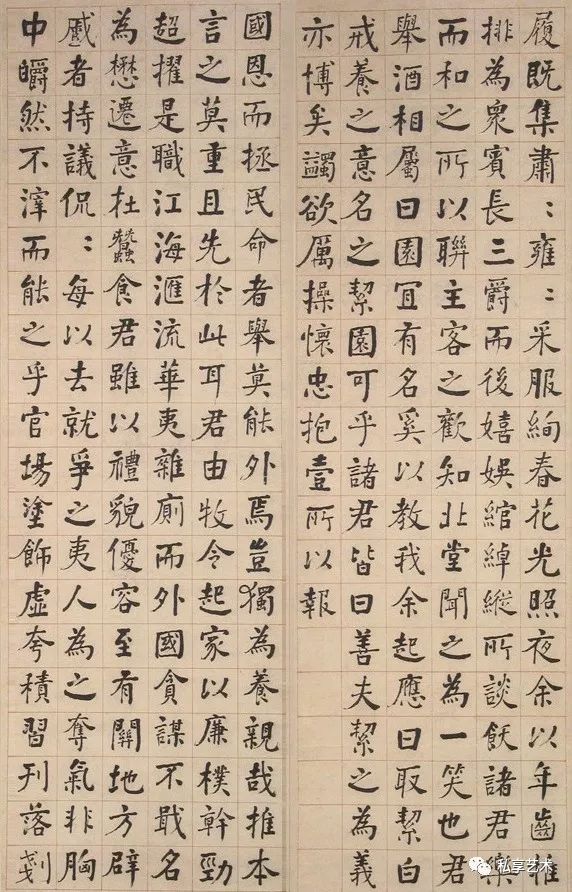 履既集肅〻雍〻采服絢春花光照夜余以年齒推
排為衆賓長三爵而後嬉娛綰綽縱所談飫諸君
而和之所以聯主客之歡知北堂聞之為一笑也君
舉酒相屬曰園宜有名奚以教我余起應曰取絜白
戒養之意名之絜園可乎諸君皆曰善夫絜之為義
亦博矣蠲欲厲操懷忠抱壹所以報
國恩而拯民命者舉莫能外焉豈獨為養親哉推本
言之莫重且先於此耳君由牧令起家以廉樸幹勁
超擢是職江海滙流華夷雜廁而外國貪謀不戢名
為懋遷意杜蠶食君雖以禮貌優容至有關地方辟
戚者持議侃〻每以去就爭之夷人為之奪氣非胸
中皭然不滓而能之乎官場塗飾虛夸積習刊落剗
私享艺术